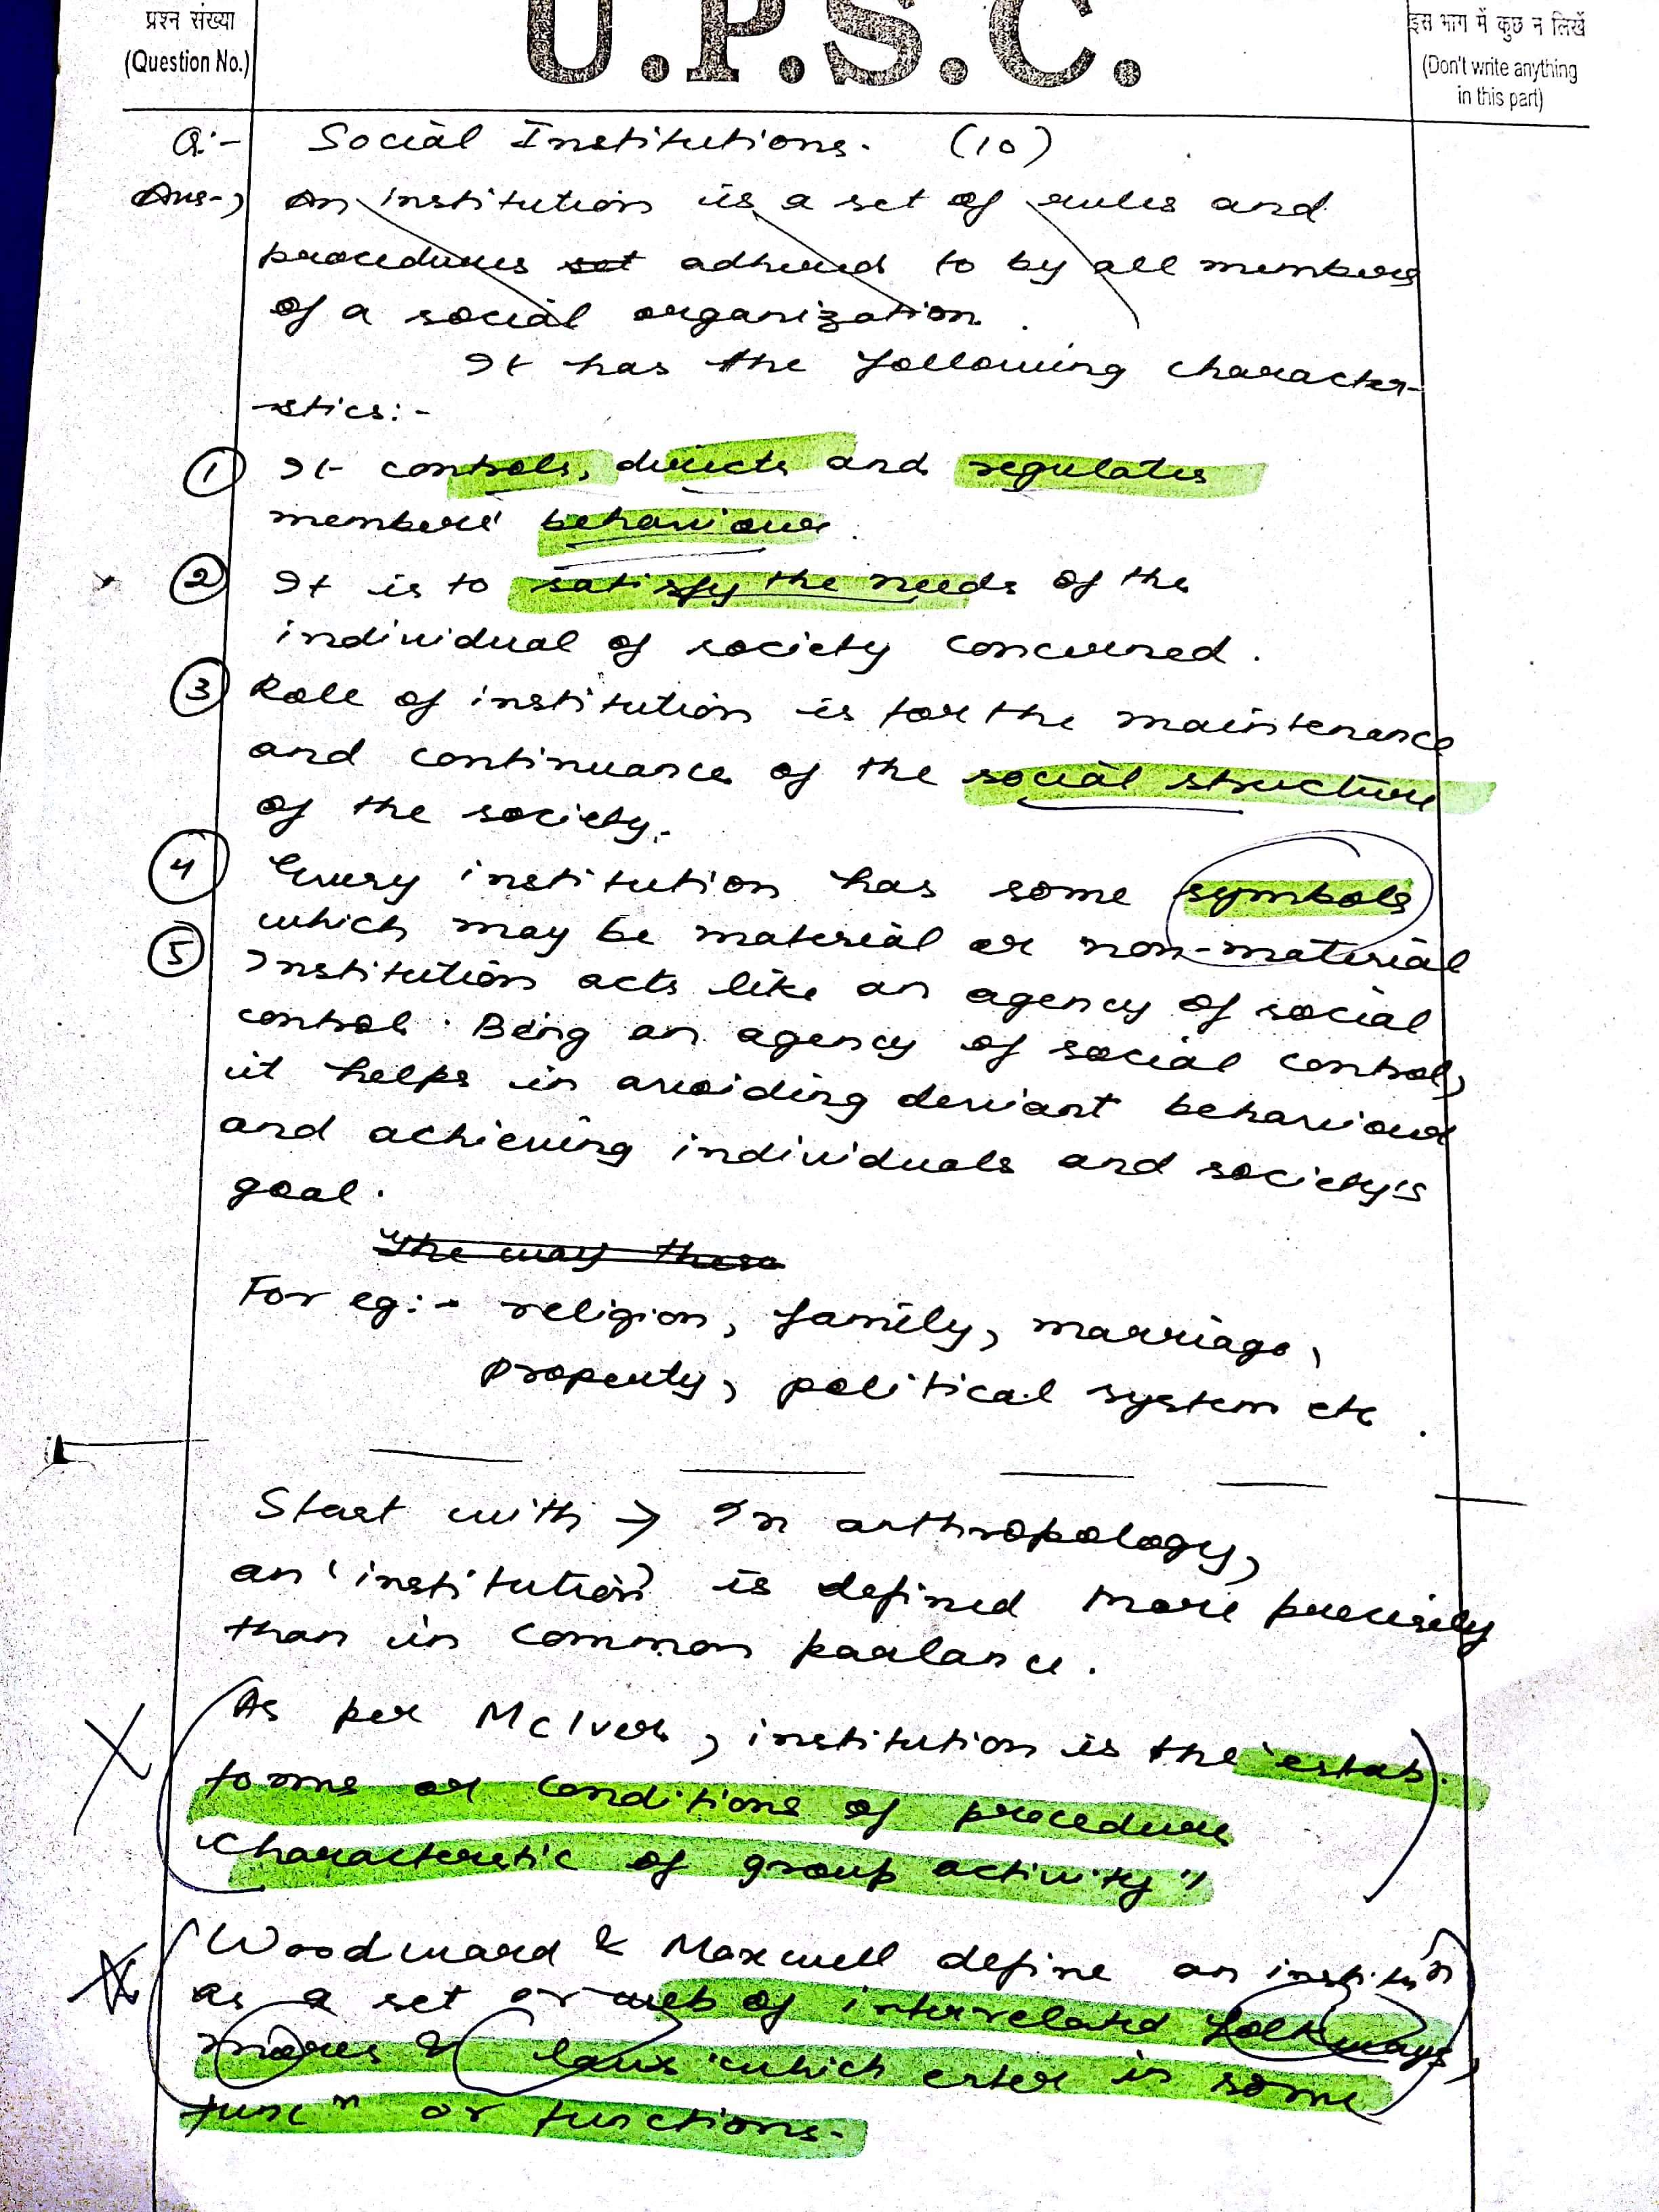 प्रश्न संख्या
(Question No.)
U.P.S.C.
इस भाग में कुछ न लिखें
(Don't write anything
in this part)
Q:- Social Institutions. (10)
Ans-) An institution is a set of rules and
procedures set adhered to by all members
of a social organization.
It has the following character-
istics:-
① It controls, directs and regulates
members' behaviour.
② It is to satisfy the needs of the
individual of society concerned.
③ Role of institution is for the maintenance
and continuance of the social structure
of the society.
④ Every institution has some symbols
which may be material or non-material
⑤ Institution acts like an agency of social
control. Being an agency of social control,
it helps in avoiding deviant behaviour
and achieving individuals and society's
goal.
The way these
For eg:- religion, family, marriage,
property, political system etc.
Start with → In anthropology,
an 'institution' is defined more precisely
than in common parlance.
As per McIver, institution is the 'estab.
forms or conditions of procedure
characteristic of group activity"
Woodward & Maxwell define an institun
as a set or web of interrelated folkways,
mores & laws which enter in some
funcn or functions.